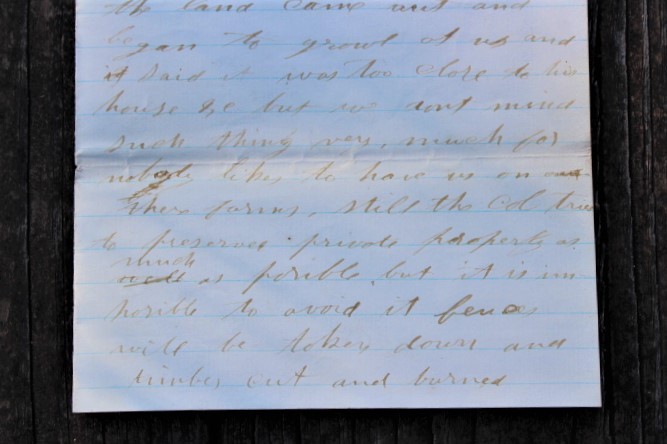 the land came out and
began to growl at us and
it said it was too close to his
house &c but we dont mind
such thing very, much for
nobody likes to have us on
there farms, still the Col tries
to preserve private property as
much
as posible, but it is im
posible to avoid it fences
will be taken down and
timber cut and burned